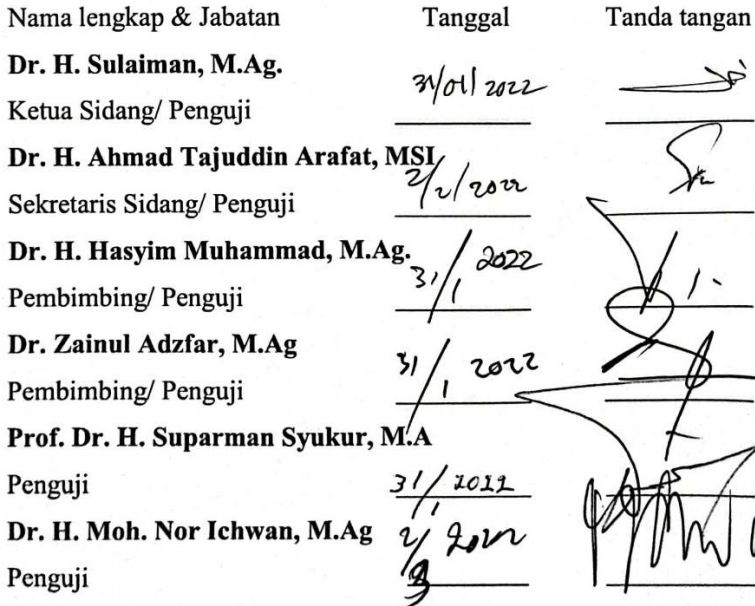 Nama lengkap & Jabatan Tanggal Tanda tangan
Dr. H. Sulaiman, M.Ag.
31/01/2022
Ketua Sidang/ Penguji
Dr. H. Ahmad Tajuddin Arafat, MSI
2/2/2022
Sekretaris Sidang/ Penguji
Dr. H. Hasyim Muhammad, M.Ag.
31/1 2022
Pembimbing/ Penguji
Dr. Zainul Adzfar, M.Ag
31/1 2022
Pembimbing/ Penguji
Prof. Dr. H. Suparman Syukur, M.A
Penguji 31/1 2022
Dr. H. Moh. Nor Ichwan, M.Ag 2/ 2022
Penguji